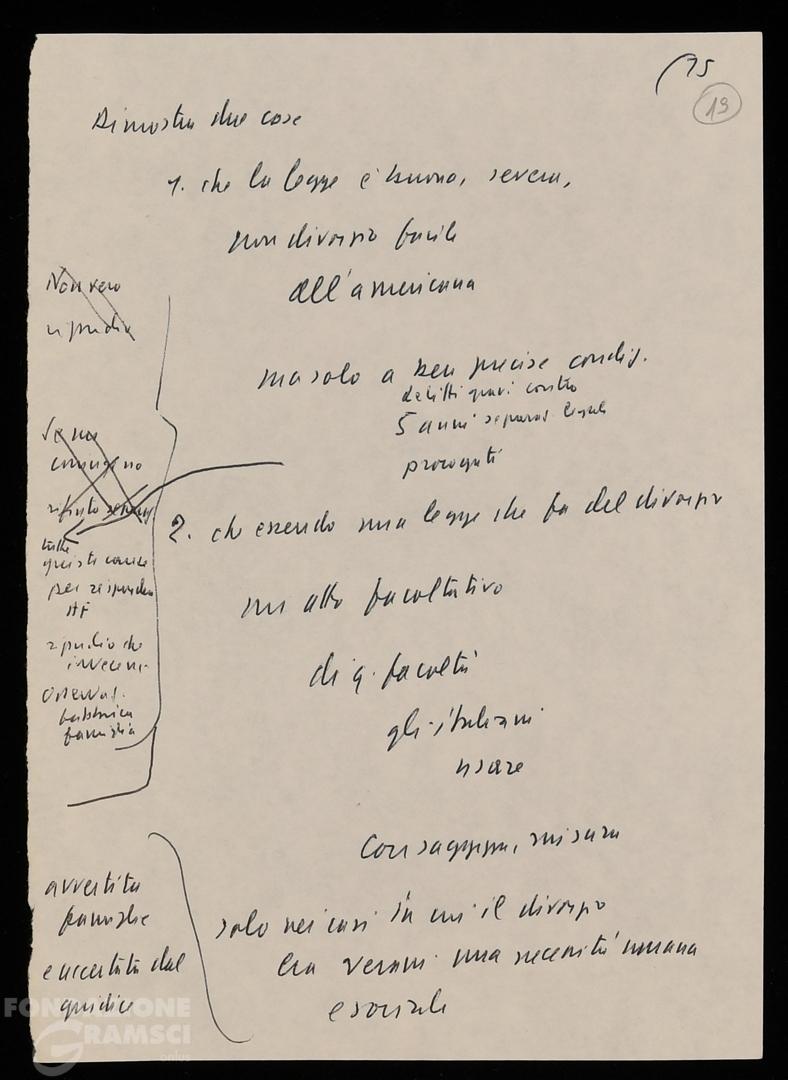 (15
19
Dimostra due cose
1. che la legge è buona, severa,
non divorzio facile
all'americana
Non vero
ripudio
ma solo a ben precise condiz.
delitti gravi contro
5 anni separaz. legale
prorogati
Se ma
rifiuto
2. che essendo una legge che fa del divorzio
tutte
queste cause
per rispondere
AF
ripudio che
invece
osservaz.
fabbrica
famiglia
un atto facoltativo
di q. facoltà
gli italiani
usare
Consapevol, misura
avvertita
famiglie
e accertata dal
giudice
solo nei casi in cui il divorzio
era veram. una necessità umana
e sociale
FONDAZIONE
GRAMSCI
onlus